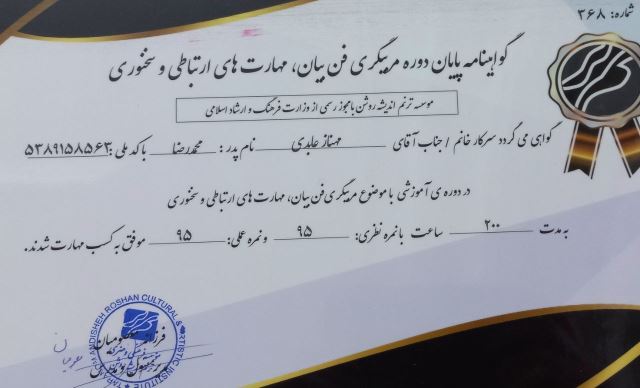 شماره: ۳۶۸
گواهینامه پایان دوره مربیگری فن بیان، مهارت های ارتباطی و سخنوری
موسسه ترنم اندیشه روشن با مجوز رسمی از وزارت فرهنگ و ارشاد اسلامی
گواهی می گردد سرکار خانم / جناب آقای مهناز عابدی نام پدر: محمدرضا با کد ملی: ۵۳۸۹۱۵۸۵۶۳
در دوره ی آموزشی با موضوع مربیگری فن بیان، مهارت های ارتباطی و سخنوری
به مدت ۲۰۰ ساعت با نمره نظری: ۹۵ و نمره عملی: ۹۵ موفق به کسب مهارت شدند.
ROSHAN CULTURAL & ARTISTIC INSTITUTE